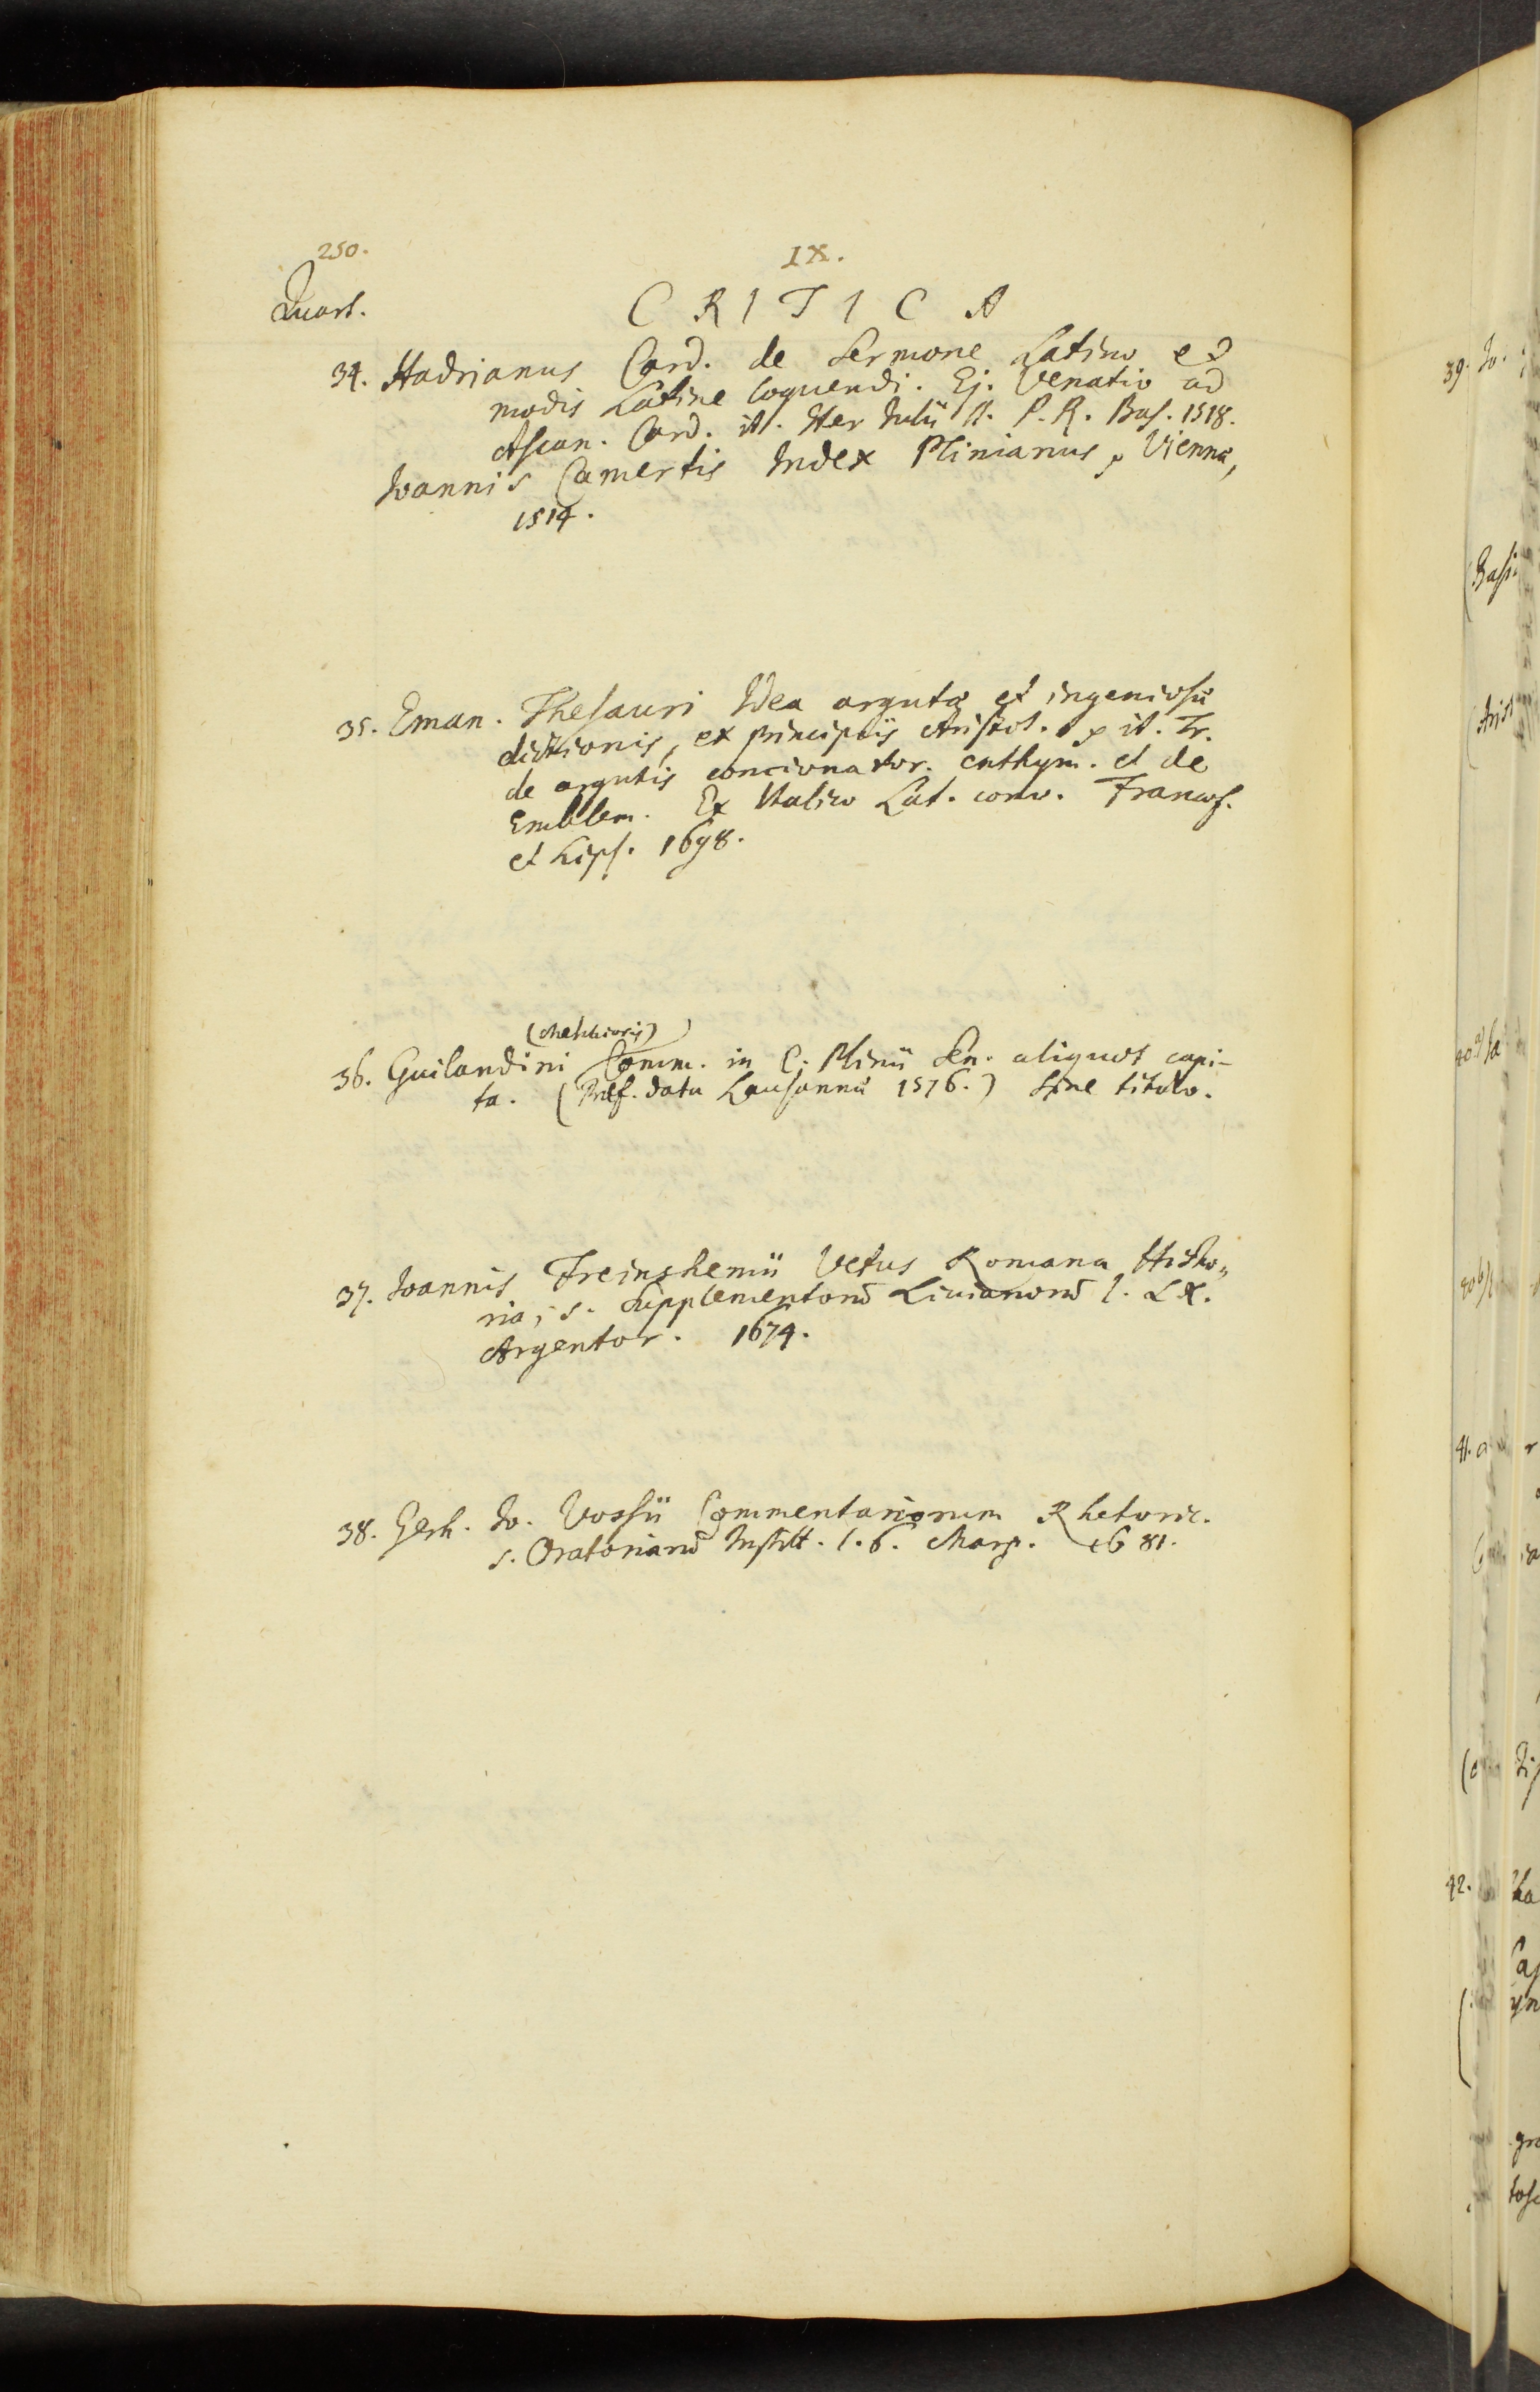 250.
IX.
Quart.
CRITICA
34. Hadrianus Card. de Sermone Latino et
modis Latine loquendi. Ej. Venatio ad
Ascan. Card. it. Iter Iulii II. P. R. Bas. 1518.
Ioannis Camertis Index Plinianus, Viennæ,
1514.
35. Eman. Thesauri Idea argutæ et ingeniosæ
dictionis, ex principiis Aristot. it. Tr.
de argutis concionator. enthym. et de
Emblem. Ex Italico Lat. conv. Francof.
et Lips. 1698.
(Melchioris)
36. Guilandini Comm. in C. Plinii Sen. aliquot capi-
ta. (Præf. data Lausannæ 1576.) Sine titulo.
37. Ioannis Freinshemii Vetus Romana Histo„
ria, s. Supplementorū Livianorū l. LX.
Argentor. 1674.
38. Gerh. Io. Vossii Commentariorum Rhetoric.
s. Oratoriarū Institt. l. 6. Marp. 1681.
39. Io.
(Basi
(Arist
41.
42.